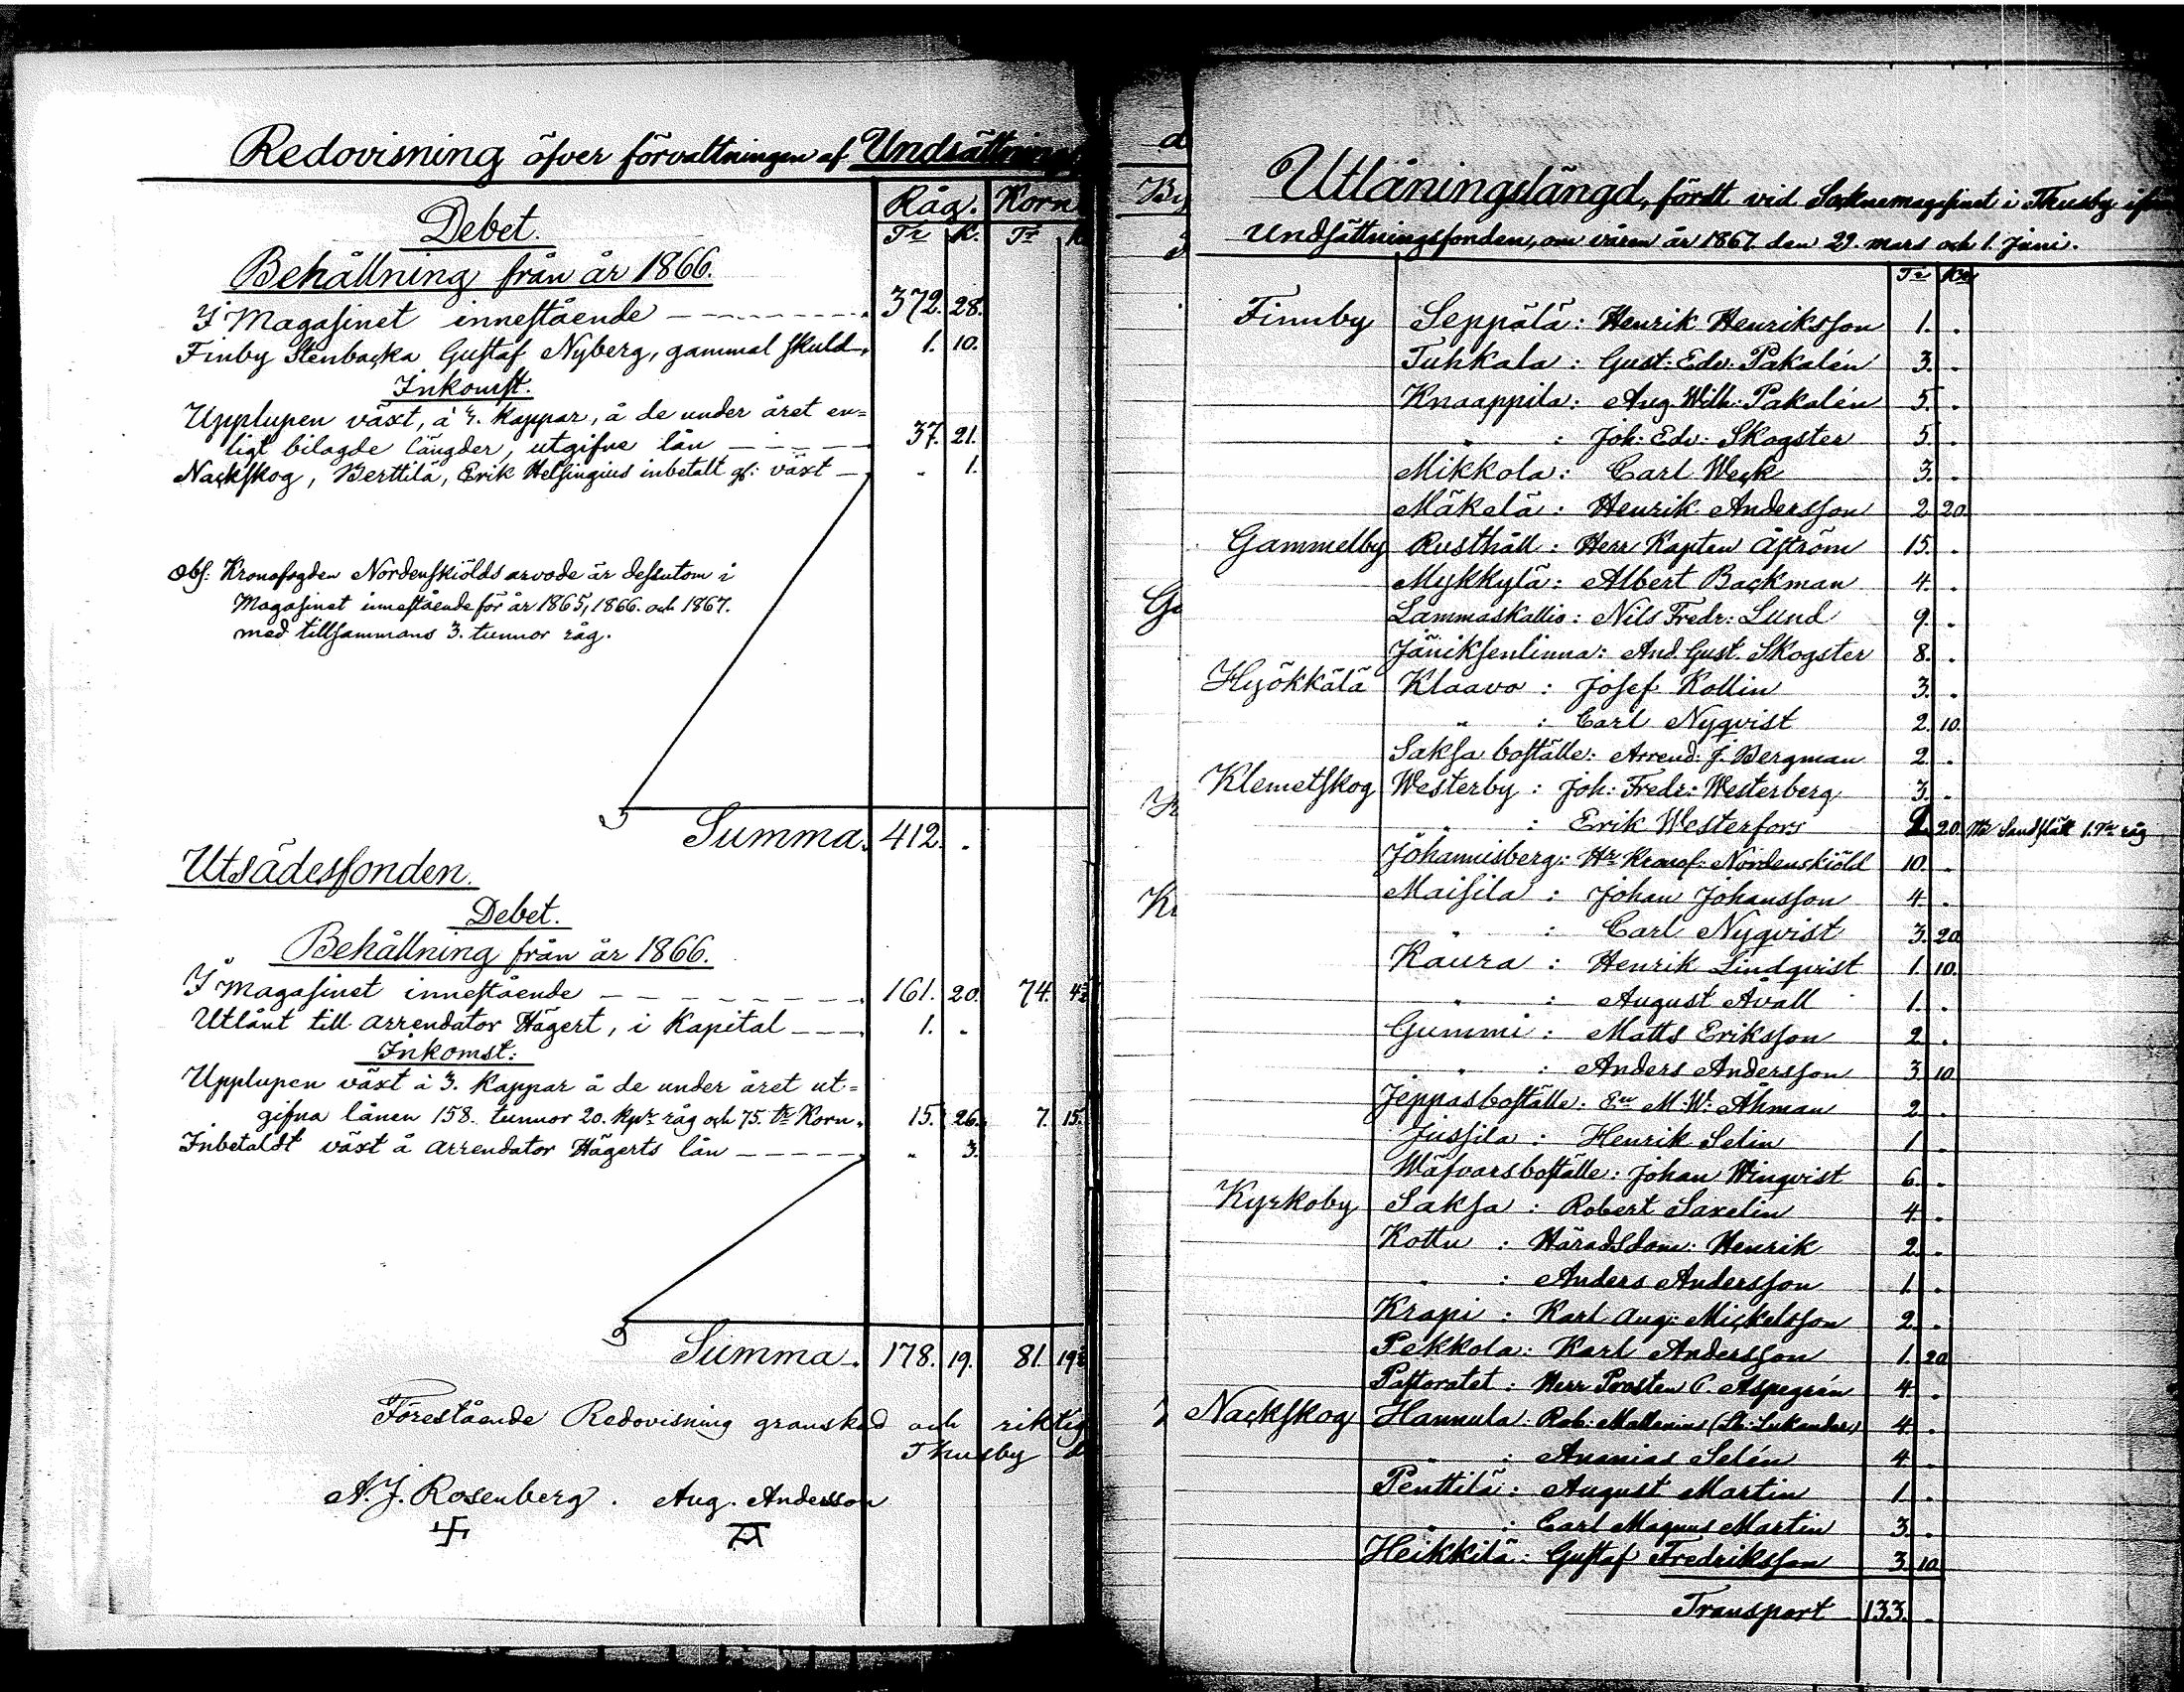 Redovisning öfver förvaltningen af Undsättnings
Råg. Korn
Debet.
Tr K. Tr K
Behållning från år 1866.
I Magasinet innestående 372. 28.
Finby Stenbacka Gustaf Nyberg, gammal skuld. 1. 10.
Inkomst.
Upplupen växt, à 4. kappar, å de under året en=
ligt bilagde längder, utgifne lån 37. 21.
Nackskog, Berttila, Erik Helsingius inbetalt gl: växt " 1.
Obs: Kronofogden Nordenskiölds arvode är dessutom i
Magasinet innestående för år 1865, 1866. och 1867.
med tillsammans 3. tunnor råg.
Summa. 412. .
Utsädesfonden.
Debet.
Behållning från år 1866.
I Magasinet innestående 161. 20. 74. 4½
Utlånt till arrendator Hägert, i Kapital 1. .
Inkomst:
Upplupen växt à 3. kappar å de under året ut=
gifna lånen 158. tunnor 20. kpr råg och 75. tr Korn. 15. 26. 7. 15.
Inbetaldt växt å arrendator Hägerts lån " 3.
Summa. 178. 19. 81. 19½
Förestående Redovisning granskad och riktig
Thusby
A. J. Rosenberg. Aug. Andersson
Utlåningslängd, fördt vid Socknemagasinet i Thusby ifrån
Undsättningsfonden, om våren år 1867. den 29. mars och 1. Juni.
Tr Kr
Finnby Seppälä: Henrik Henriksson 1. .
Tuhkala: Gust: Edv: Pakalén 3. .
Knaappila: Aug Wilh: Pakalén 5. .
" : Joh: Edv: Skogster 5. .
Mikkola: Carl Weck 3. .
Mäkelä: Henrik Andersson 2 20.
Gammelby Rusthåll: Herr Kapten Åström 15. .
Mykkylä: Albert Backman 4. .
Lammaskallio: Nils Fredr: Lund 9. .
Jäniksenlinna: And. Gust. Skogster 8. .
Hyökkälä Klaavo: Josef Kollin 3. .
" : Carl Nyqvist 2. 10.
Saksa boställe: Arrend: J. Bergman 2 .
Klemetskog Westerby: Joh: Fredr: Westerberg 3. .
" : Erik Westerfors 20. 1. Tr råg
Johannisberg: Hr Kronof: Nordenskiöld 10. .
Maisila: Johan Johansson 4 .
" : Carl Nyqvist 3. 20
Kaura: Henrik Lindqvist 1. 10.
" : August Åvall 1. .
Gummi: Matts Eriksson 2 .
" : Anders Andersson 3. 10
Jeppasboställe: M: W: Åhman 2. .
Jussila: Henrik Selin 1 .
Wäfvarsboställe: Johan Winqvist 6. .
Kyrkoby Saksa: Robert Saxelin 4. .
Kottu: Häradsdom: Henrik 2. .
" : Anders Andersson 1. .
Krapi: Karl Aug: Mickelsson 2. .
Pekkola: Karl Andersson 1. 20
Pastoratet: Herr Prosten C. Aspegrén 4. .
Nackskog Hannula: Rob: 4. .
" : Ananias Selén 4 .
Penttilä: August Martin 1 .
" : Carl Magnus Martin 3. .
Heikkilä: Gustaf Fredriksson 3. 10.
Transport 133. .